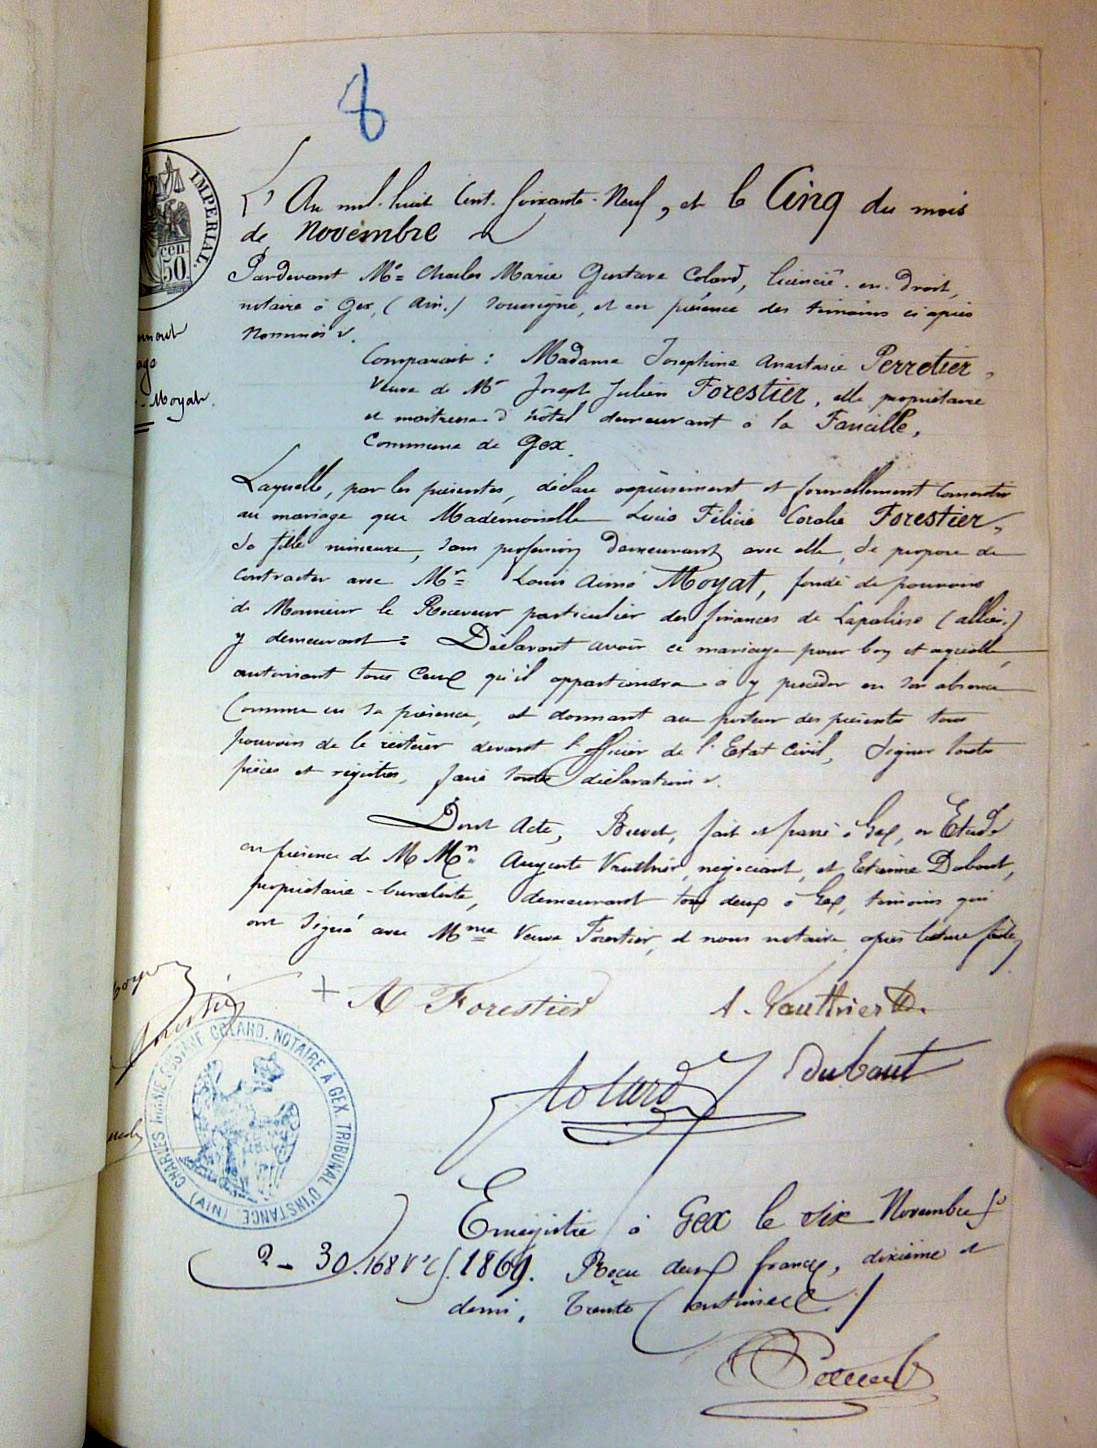 8
IMPERIAL.
cen.
50
L'An mil huit Cent Soixante-Neuf, et le Cinq du mois
de Novembre
Pardevant Me Charles Marie Gustave Colard, licencié en droit,
notaire à Gex, (Ain.) soussigné, et en présence des témoins ci après
Nommés.
Comparait : Madame Josephine Anastasie Perretier,
Veuve de Mr Joseph Julien Forestier, elle propriétaire
et maitresse d'hôtel demeurant à la Faucille,
Commune de Gex.
Moyat.
Laquelle, par les présentes, déclare expressément et formellement Consentir
au mariage que Mademoiselle Lucie Félicie Coralie Forestier,
Sa fille mineure, Sans profession, demeurant avec elle, Se propose de
Contracter avec Mr Louis Aimé Moyat, fondé de pouvoirs
de Monsieur le Receveur particulier des finances de Lapalisse (allier.)
y demeurant : Déclarant avoir ce mariage pour bon et agréable,
autorisant tous Ceux qu'il appartiendra à y procéder en Son absence
Comme en Sa présence, et donnant au porteur des présentes tous
pouvoirs de le réitérer devant l'officier de l'Etat Civil, Signer toutes
pièces et registres, faire toutes déclarations.
Dont Acte, Brevet, fait et passé à Gex, en Etude
en présence de MMrs Auguste Vauthier, négociant, et Etienne Dubout,
propriétaire-buraliste, demeurant tous deux à Gex, témoins qui
ont Signé avec Mme Veuve Forestier, et nous notaire, après lecture faite,
+ A Forestier A. Vauthier
Colard Dubout
CHARLES MARIE GUSTAVE COLARD, NOTAIRE À GEX. TRIBUNAL D'INSTANCE. (AIN)
Enregistré à Gex le Six Novembre
2 - 30. 168 1869. Reçu deux francs, dixième et
demi, Trente Centimes